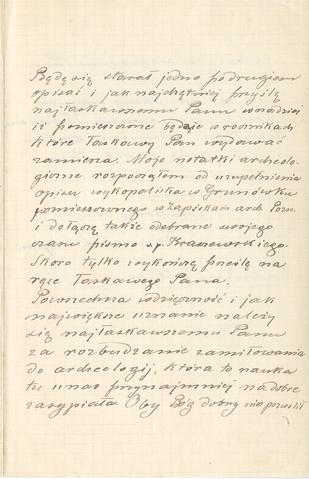 Będę się starał jedno po drugiem
opisać i jak najchętniej przyślę
najłaskawszemu Panu w nadziei
iż pomieszczone będzie w rocznikach
które Łaskawy Pan wydawać
zamierza. Moje notatki archeolo-
giczne rozpocząłem od uzupełnienia
opisu wykopaliska w Grunówku
pomieszczonego w Zapiskach arch. Pozn.
i dołączę także odebrane swojego
czasu pismo s.p. Kraszewskiego.
Skoro tylko wykończę prześlę na
ręce Łaskawego Pana.
Powszechna wdzięczność i jak
największe uznanie należy
się najłaskawszemu Panu
za rozbudzanie zamiłowania
do archeologij, która to nauka
tu u nas przynajmniej na dobre
zasypiała. Oby Bóg dobry nie pozwolił